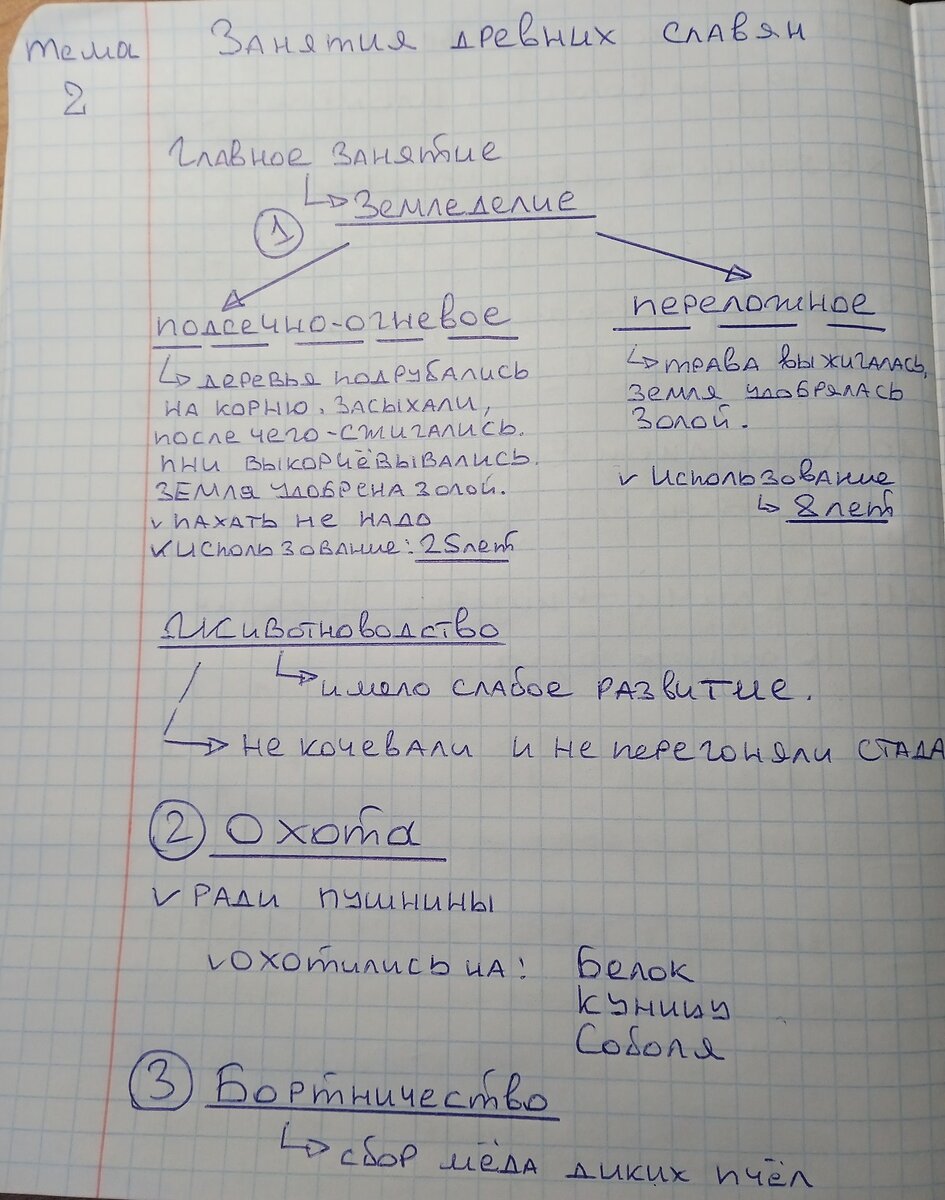 Тема
2
Занятия древних славян
Главное занятие
↳ Земледелие
1
подсечно-огневое
↳ деревья подрубались
на корню. засыхали,
после чего-сжигались.
пни выкорчёвывались.
земля удобрена золой.
✓ пахать не надо
✓ использование: 25 лет
переложное
↳ трава выжигалась,
земля удобрялась
золой.
✓ Использование
↳ 8 лет
Животноводство
↳ имело слабое развитие.
→ не кочевали и не перегоняли стада
2 Охота
✓ ради пушнины
✓ охотились на: Белок
куницу
Соболя
3 Бортничество
↳ сбор мёда диких пчёл